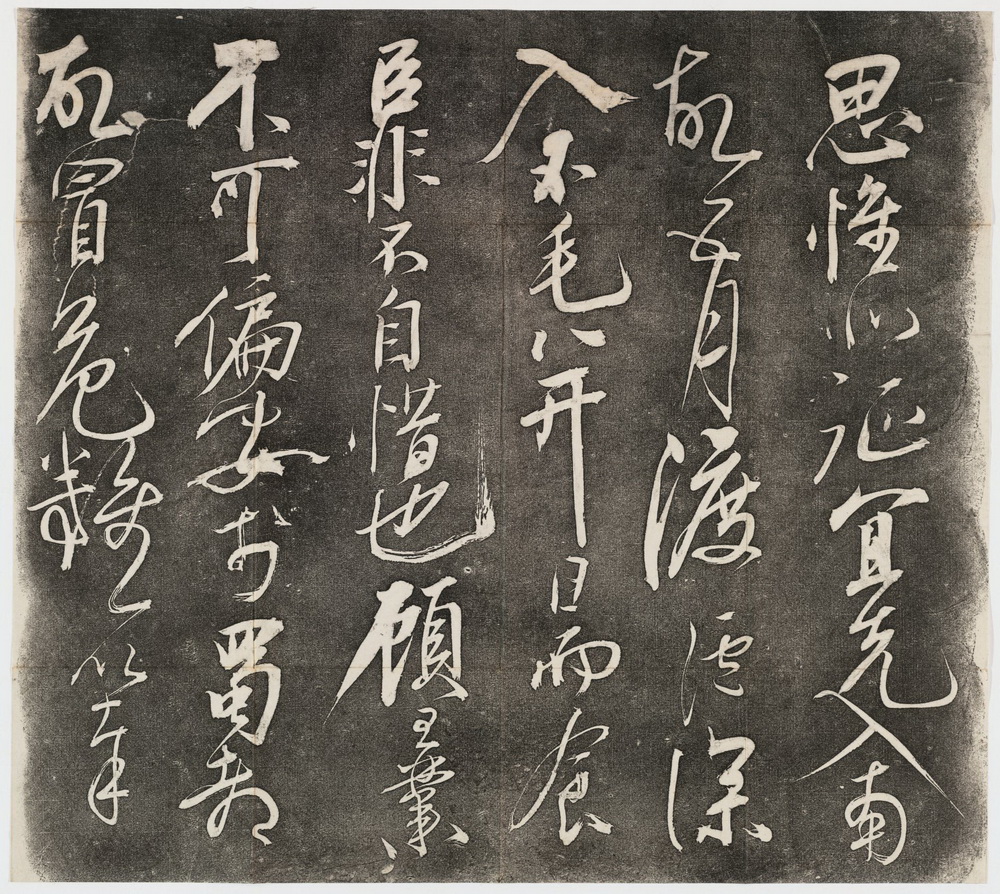 思惟北征宜先入南
故五月渡瀘深
入不毛并日而食
臣非不自惜也顧王業
不可偏安於蜀都
故冒危難以奉